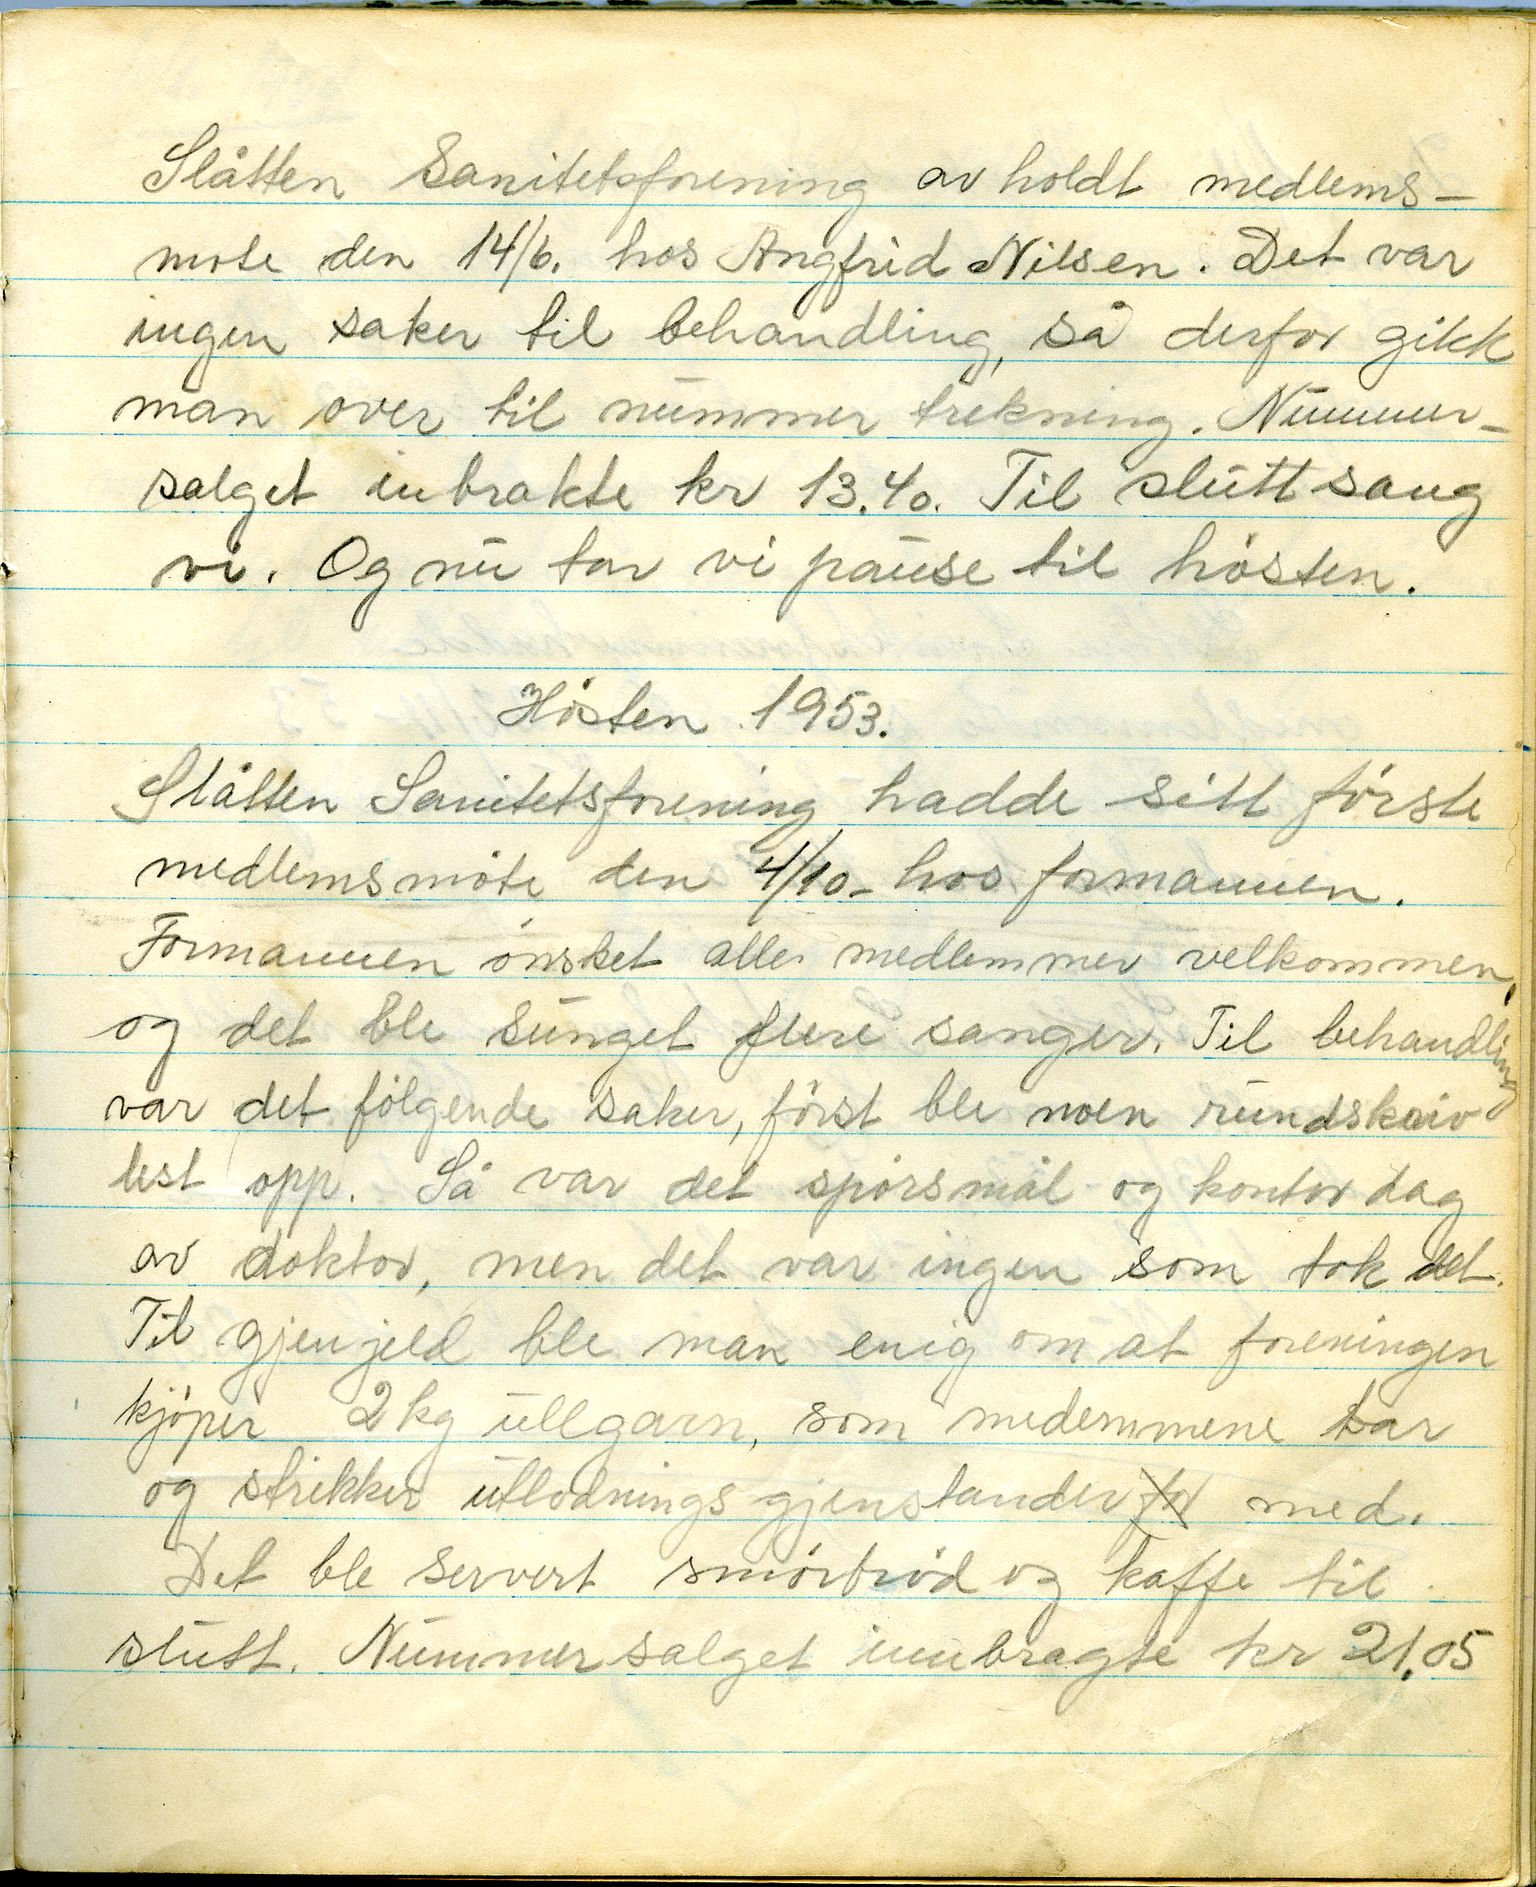 Slåtten Sanitetsforening avholdt medlems-
møte den 14/6. hos Angfrid Nilsen. Det var
ingen saker til behandling, så derfor gikk
man over til nummer trekning. Nummer-
salget inbrakte kr 13.40. Til slutt sang
vi. Og nu tar vi pause til høsten.
Høsten 1953.
Slåtten Sanitetsforening hadde sitt første
medlemsmøte den 4/10- hos formannen.
Formannen ønsket alle medlemmer velkommen,
og det ble sunget flere sanger. Til behandling
var det følgende saker, først ble noen rundskriv
lest opp. Så var det spørsmål og kontor dag
av doktor, men det var ingen som tok det.
Til gjenjeld ble man enig om at foreningen
kjøper 2 kg ullgarn, som medemmene tar
og strikker utlodnings gjenstander for med.
Det ble servert smørbrød og kaffe til
slutt. Nummersalget innbragte kr 21,05